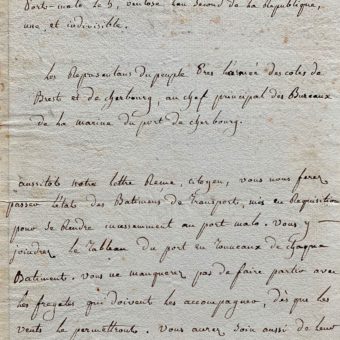 Port-malo le 5, ventose l'an second de la République,
une et indivisible.
Les Représentans du peuple Près l'armée des cotes de
Brest et de cherbourg, au chef principal des Bureaux
de la marine du port de cherbourg.
aussitot notre lettre Reçue, citoyen, vous nous ferez
passer l'état des Batimens de Transports, mis en Requisition
pour se Rendre incessamment au port malo. Vous y
joindrez le Tableau du port en Tonneaux de chaque
Batiment. Vous ne manquerez pas de faire partir avec
les fregates qui doivent les accompagner, dès que les
vents le permettront. Vous aurez soin aussi de leur